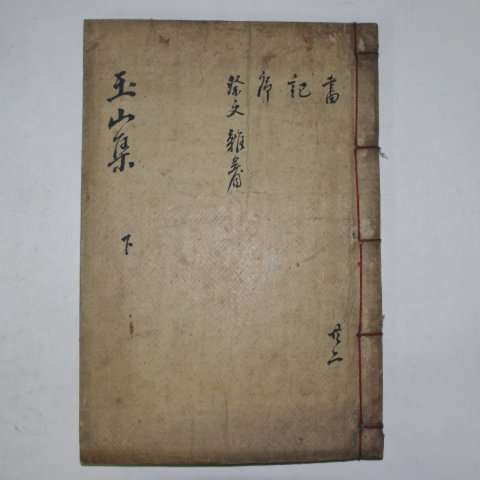 書
記
序
祭文雜著
玉山集
下
共二